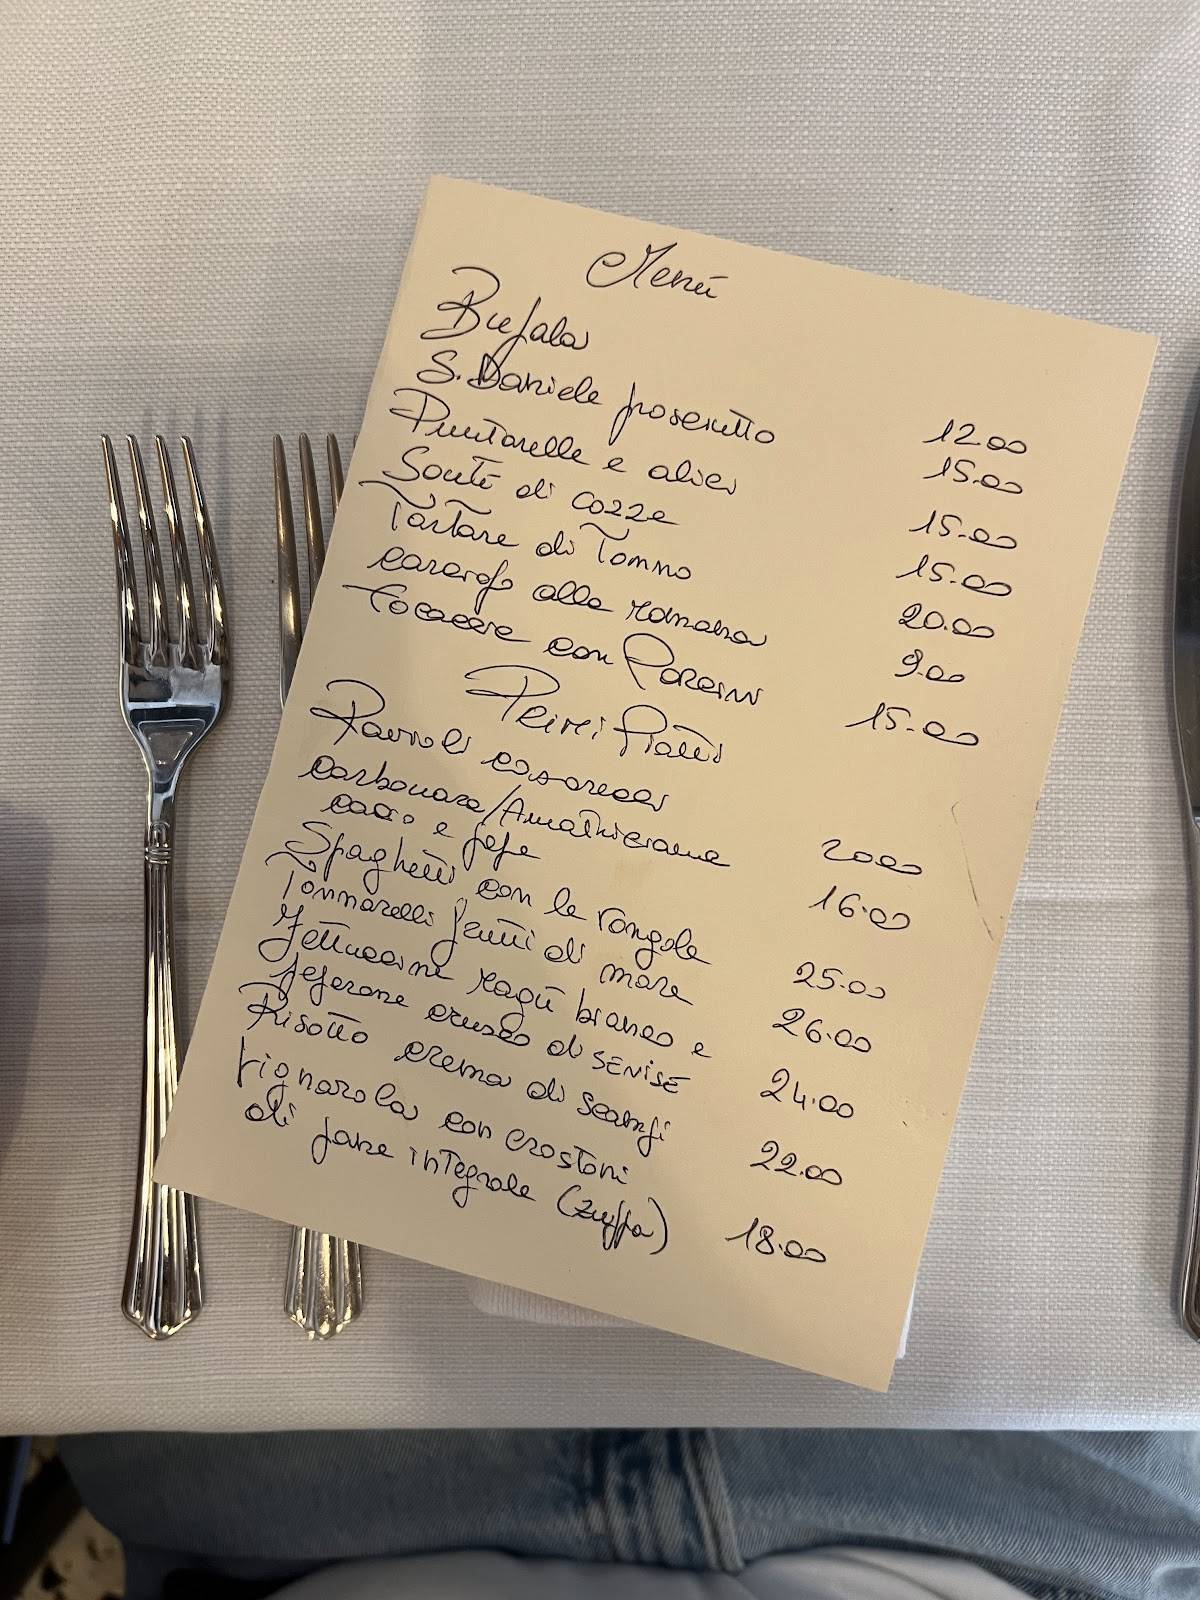 Menú
Bufala 12.00
S. Daniele prosciutto 15.00
Puntarelle e alici 15.00
Soutè di cozze 15.00
Tartare di Tonno 20.00
carciofo alla romana 9.00
focaccia con Porcini 15.00
Primi Piatti
Ravioli casarecci 2000
carbonara/Amathiciana 16.00
cacio e pepe
Spaghetti con le vongole 25.00
Tonnarelli frutti di mare 26.00
fettuccine ragù bianco e 24.00
peperone crusco di SENISE
Risotto crema di scampi 22.00
Vignarola con crostoni
di pane integrale (zuppa) 18.00